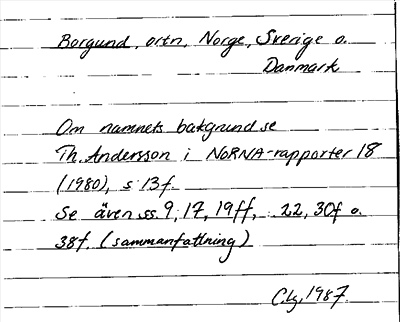 Borgund, ortn, Norge, Sverige o.
Danmark
Om namnets bakgrund se
Th. Andersson i NORNA-rapporter 18
(1980), s 13f.
Se även ss. 9, 17, 19ff, 22, 30f o.
38f. (sammanfattning)
C.lg. 1987.